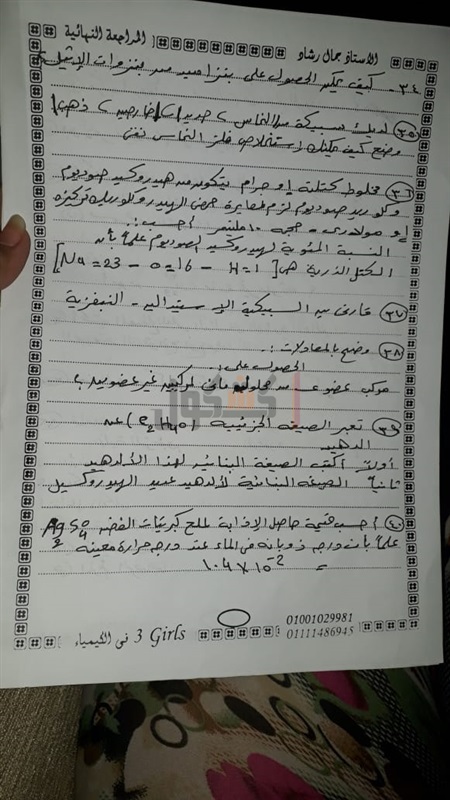 الأستاذ جمال رشاد المراجعة النهائية
٣٤ - كيف يمكن الحصول على بنزاميد من بنزوات الإيثيل
٣٥ لديك سبيكة من النحاس، حديد، خارصين، ذهب
وضح كيف يمكنك استخلاص فلز النحاس نقى
٣٦ مخلوط كتلته ١و جرام يتكون من هيدروكسيد صوديوم
وكلوريد صوديوم لزم لمعايرة حمض الهيدروكلوريك تركيزه
١و مولارى - حجمه ١٠ ملليلتر احسب :-
النسبة المئوية لهيدروكسيد الصوديوم علماً بأن
الكتل الذرية هى [Na = 23 - O = 16 - H = 1]
٣٧ قارن بين السبيكة الإستبدالية - البينفزية
٣٨ وضح بالمعادلات :.
الحصول على :.
مركب عضوى من محلول مائى لمركبين غير عضويين
كشكول
٣٩ تعبر الصيغة الجزئيية (C2H4O) عن
الدهيد
أولاً : أكتب الصيغة البنائية لهذا الألدهيد
ثانياً الصيغة البنائية لألدهيد عديد الهيدروكسيل
٤٠ احسب قيمة حاصل الإذابة لملح كبريتات الفضه Ag2SO4
علماً بأن درجة ذوبانه فى الماء عند درجة حرارة معينه
= ١.٤ × 10-2
3 Girls فى الكيمياء
01001029981
01111486945